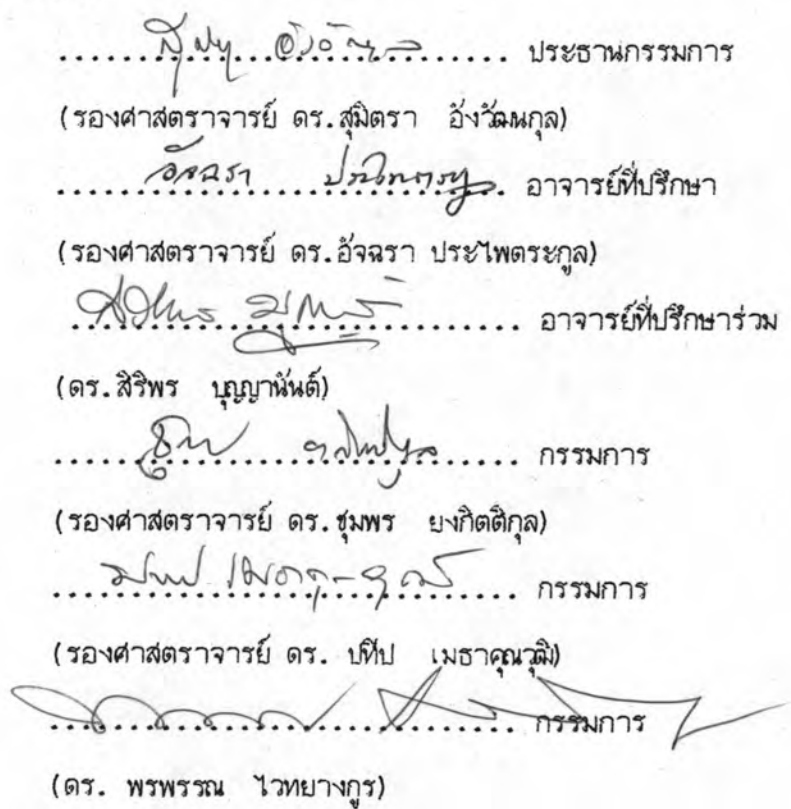 ............................ ประธานกรรมการ
(รองศาสตราจารย์ ดร.สุมิตรา อังวัฒนกุล)
อัจฉรา ............................ อาจารย์ที่ปรึกษา
(รองศาสตราจารย์ ดร.อัจฉรา ประไพตระกูล)
............................ อาจารย์ที่ปรึกษาร่วม
(ดร.สิริพร บุญญานันต์)
............................ กรรมการ
(รองศาสตราจารย์ ดร.ชุมพร ยงกิตติกุล)
............................ กรรมการ
(รองศาสตราจารย์ ดร. ปทีป เมธาคุณวุฒิ)
............................ กรรมการ
(ดร. พรพรรณ ไวทยางกูร)